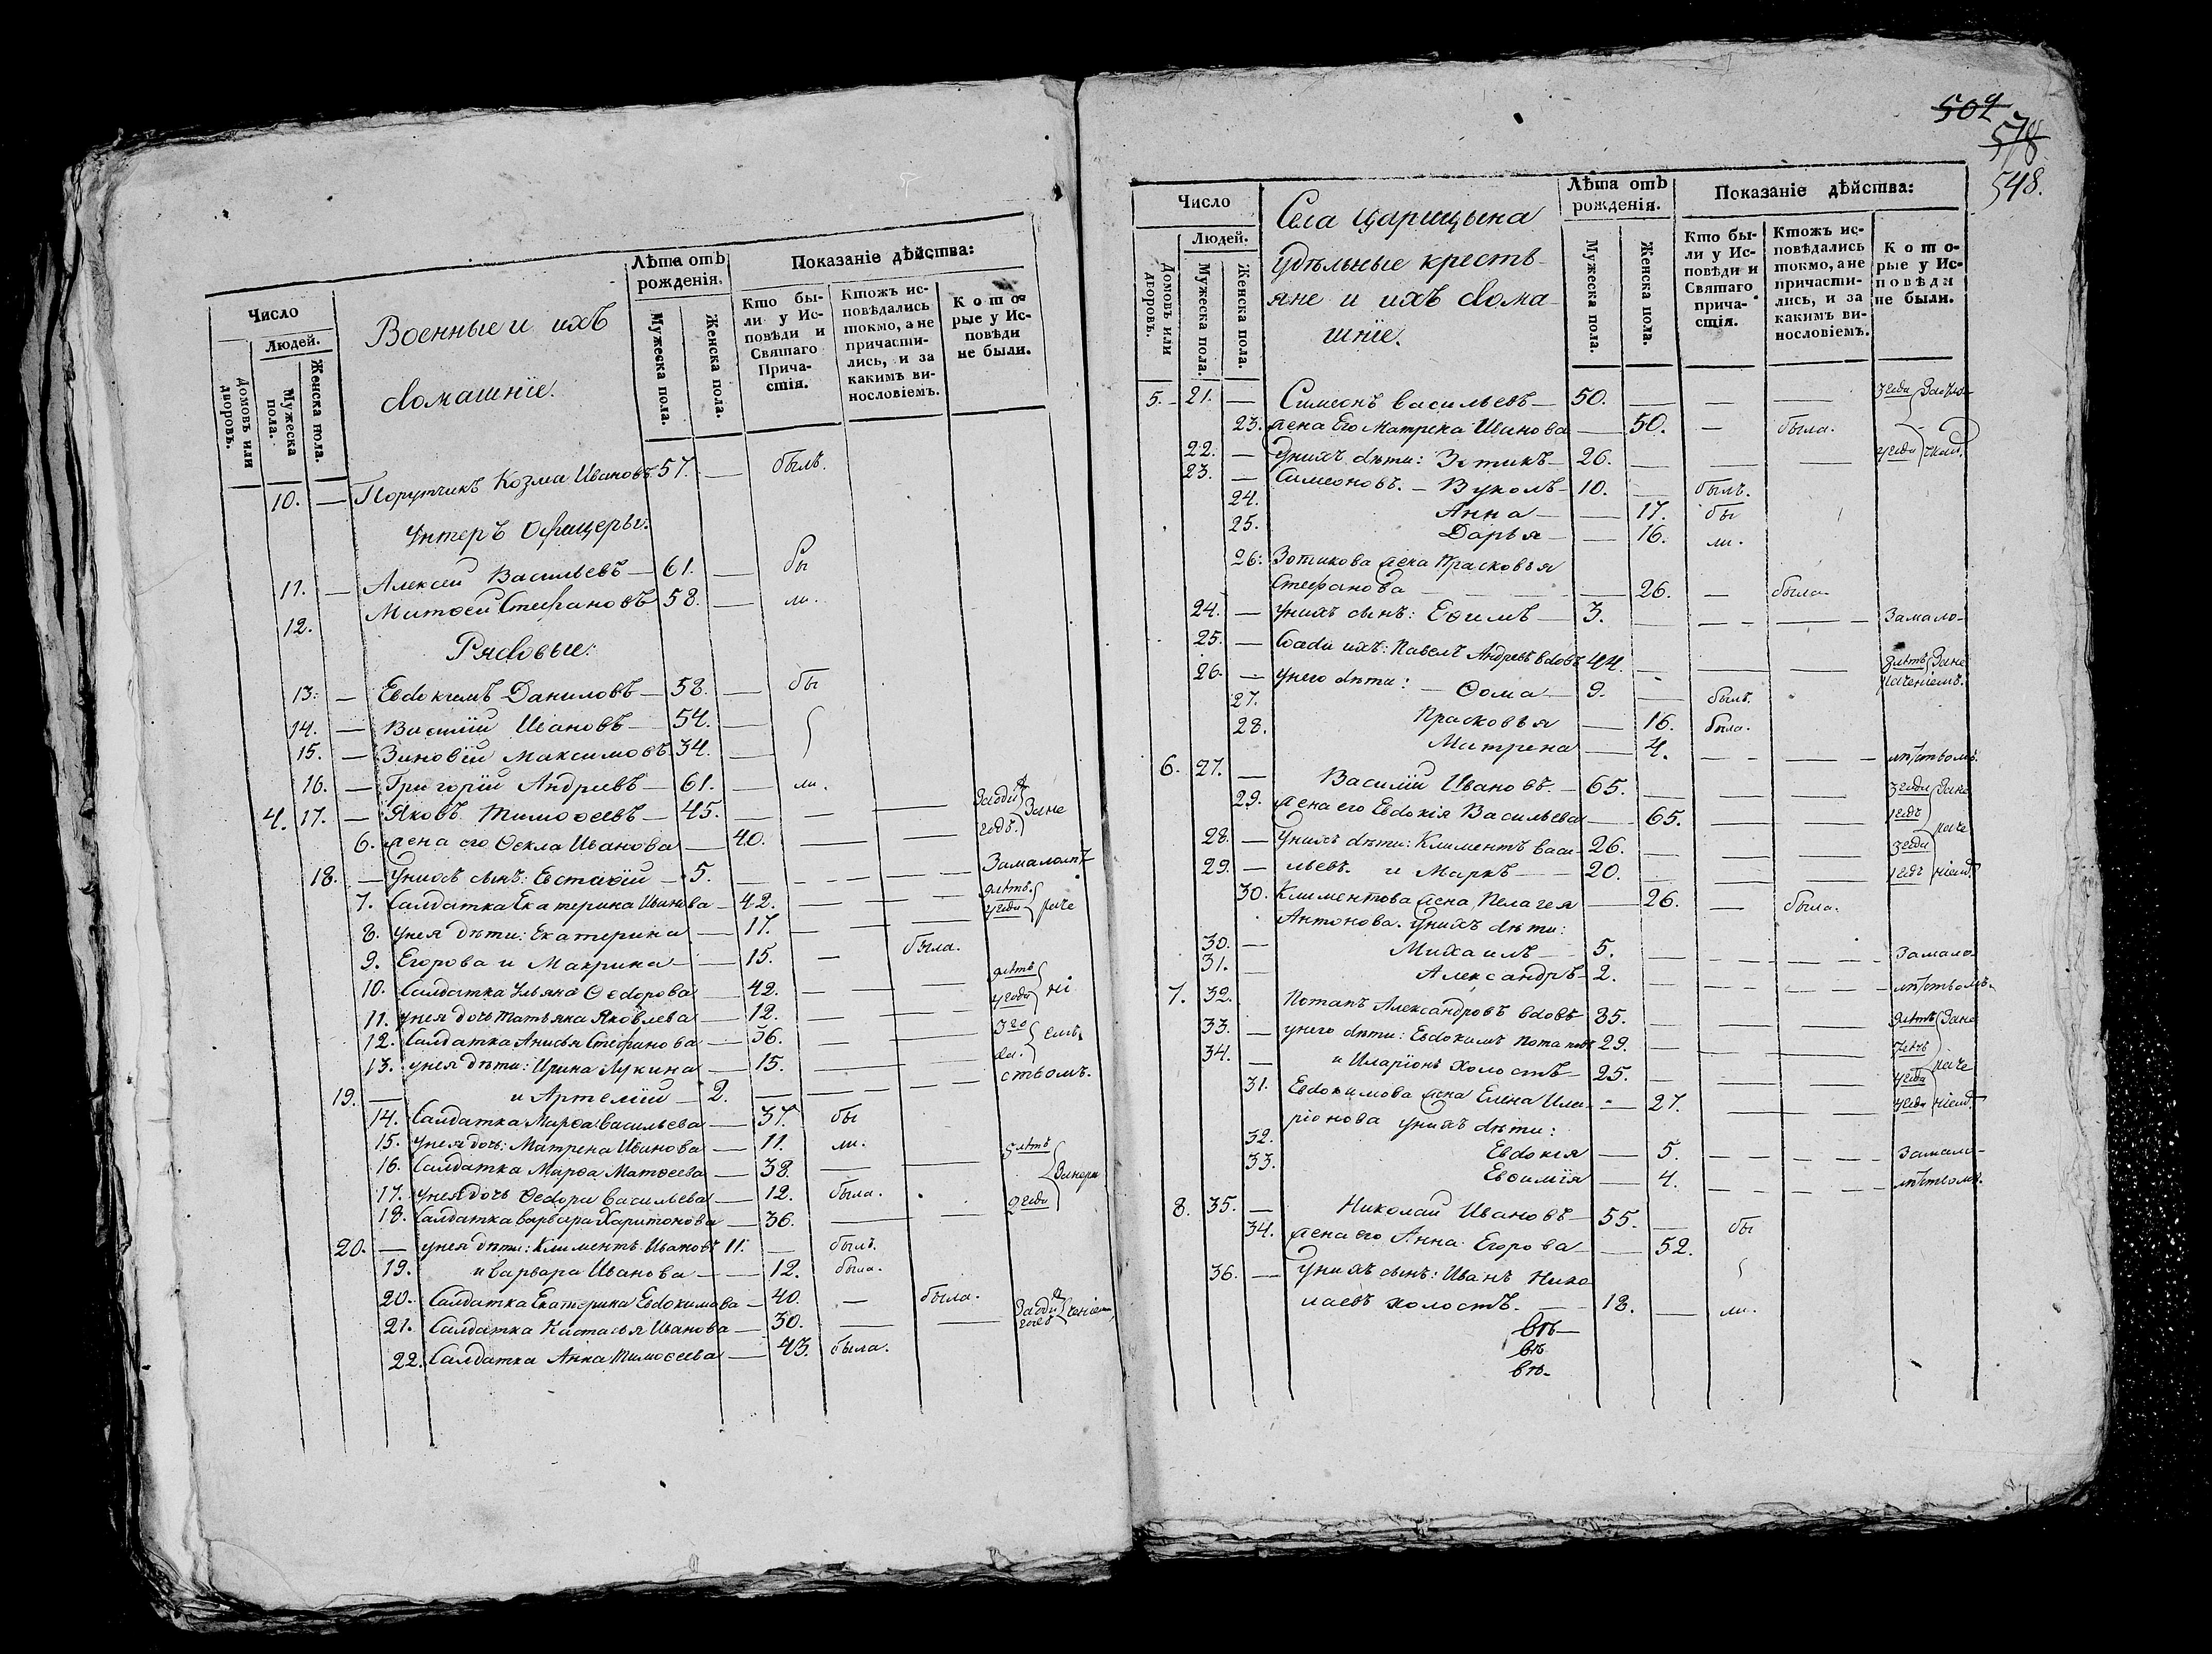 Число
Людей.
Домовъ или дворовъ.
Мужеска пола.
Женска пола.
Военные и ихъ
домашніе.
Лѣта отъ рожденія.
Мужеска пола.
Женска пола.
Показаніе дѣйства:
Кто были у Исповѣди и Святаго Причастія.
Ктожъ исповѣдались токмо, а не причастились, и за какимъ винословіемъ.
Которые у Исповѣди не были.
10. — Порутчикъ Козма Ивановъ 57. — былъ.
Унтеръ Офицеры.
11. — Алексѣй Васильевъ — 61. — бы
12. Матѳей Стефановъ 58. — ли.
Рядовые:
13. — Евдокимъ Даниловъ — 58. — бы
14. — Василій Ивановъ — 54. —
15. — Зиновій Максимовъ 34. —
16. — Григорій Андреевъ — 61. — ли.
4. 17. — Яковъ Тимоѳеевъ — 45. — — —
6. жена его Ѳекла Иванова — 40. — — годъ. Зане
18. — У нихъ сынъ: Евстаѳій — 5. — — — Замалолѣт
7. Салдатка Екатерина Иванова — 42. — —
8. у нея дѣти: Екатерина — 17. — — 4 года раче
9. Егорова и Макрина — 15. — была.
10. Салдатка Ульяна Ѳедорова — 42. — —
11. у нея дочь Татьяна Яковлева — 12. — — 4 года ні
12. Салдатка Анисья Стефанова — 36. — —
13. у нея дѣти: Ирина Лукина — 15. — — емъ.
19. — и Артемій — 2. — — — ством.
14. Салдатка Марѳа Васильева — 37. бы
15. у нея дочь: Матрена Иванова — 11. ли.
16. Салдатка Марѳа Матѳеева — 38. — — 5 лѣтъ
17. у нея дочь Ѳедора Васильева — 12. была. Занера
18. Салдатка Варвара Харитонова — 36. — — 2 года
20. — у нея дѣти: Климентъ Ивановъ 11. — былъ.
19. и Варвара Иванова — 12. была.
20. Салдатка Екатерина Евдокимова — 40. — была.
21. Салдатка Настасья Иванова — 30. — — годъ ченіемъ
22. Салдатка Анна Тимоѳеева — 43. была.
509
578
548.
Число
Людей.
Домовъ или дворовъ.
Мужеска пола.
Женска пола.
Села Царицына
удѣльные кресть-
яне и ихъ дома-
шніе.
Лѣта отъ рожденія.
Мужеска пола.
Женска пола.
Показаніе дѣйства:
Кто были у Исповѣди и Святаго причастія.
Ктожъ исповѣдались токмо, а не причастились, и за какимъ винословіемъ.
Которые у Исповѣди не были.
5. 21. — Симеонъ Васильевъ — 50. — — — 3 года
23. жена Его Матрена Иванова — 50. — была.
22. — У нихъ дѣти: Зотикъ — 26. — — — 4 года
23. — Симеоновъ. — Вуколъ — 10. — былъ.
24. Анна — — 17. бы
25. Дарья — — 16. ли.
26. Зотикова жена Прасковья
Стефанова — — 26. — была
24. — у нихъ сынъ: Еѳимъ — 3. — — — Замало-
25. — Дядя ихъ: Павелъ Андреевъ вдовъ 44. — — — 9 лѣтъ Зане
26. — у него дѣти: — Ѳома — 9. — былъ. раченіемъ.
27. Прасковья — 16. была.
28. Матрена — 4. — — — лѣтствомъ.
6. 27. — Василій Ивановъ. — 65. — — — 3 года Зане
29. жена его Евдокія Васильева — 65. — — 1 годъ
28. — У нихъ дѣти: Климентъ Васи- 26. — — — 3 года раче
29. — льевъ. и Маркъ — 20. — — — 1 годъ ніемъ
30. Климентова жена Пелагея — 26. — была.
Антонова. У нихъ дѣти:
30. — Михаилъ — 5. — — — Замало-
31. — Александръ — 2. — — — лѣтствомъ.
7. 32. Потапъ Александровъ вдовъ 85. — — — 9 лѣтъ Зане
33. — у него дѣти: Евдокимъ Потаповъ 29. — — —
34. — и Иларіонъ холостъ — 25. — — — 4 года раче
31. Евдокимова жена Елена Ила- — 27. — — 4 года ніемъ
ріонова у нихъ дѣти:
32. Евдокія — 5. — — — Замало-
33. Евѳимія — 4. — — — лѣтствомъ.
8. 35. — Николай Ивановъ — 55. — бы
34. жена его Анна Егорова — 52.
36. — У нихъ сынъ: Иванъ Нико
лаевъ холостъ. — 18. — ли.